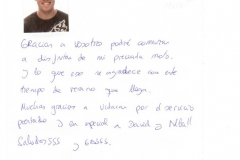 Gracias a vosotros podré comenzar
a disfrutar de mi preciada moto.
y lo que eso se agradece con este
tiempo de verano que llega.
Muchas gracias a Vidania por el servicio
prestado y en especial a David y
Saludosss y besos.